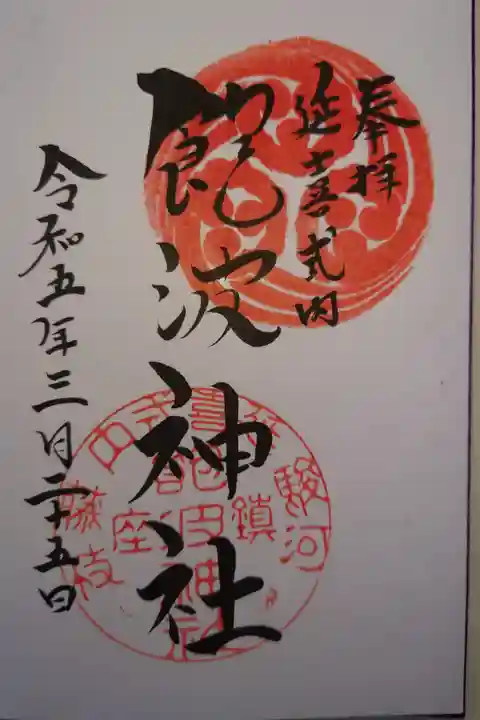 奉拝
延喜式内
飽波神社
令和五年三月二十五日
駿河
鎮座
藤枝
延喜式内
飽波神社